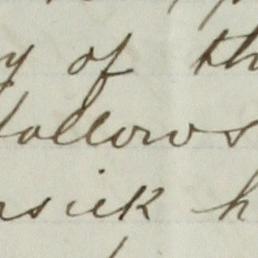 y of th
follows
sick h